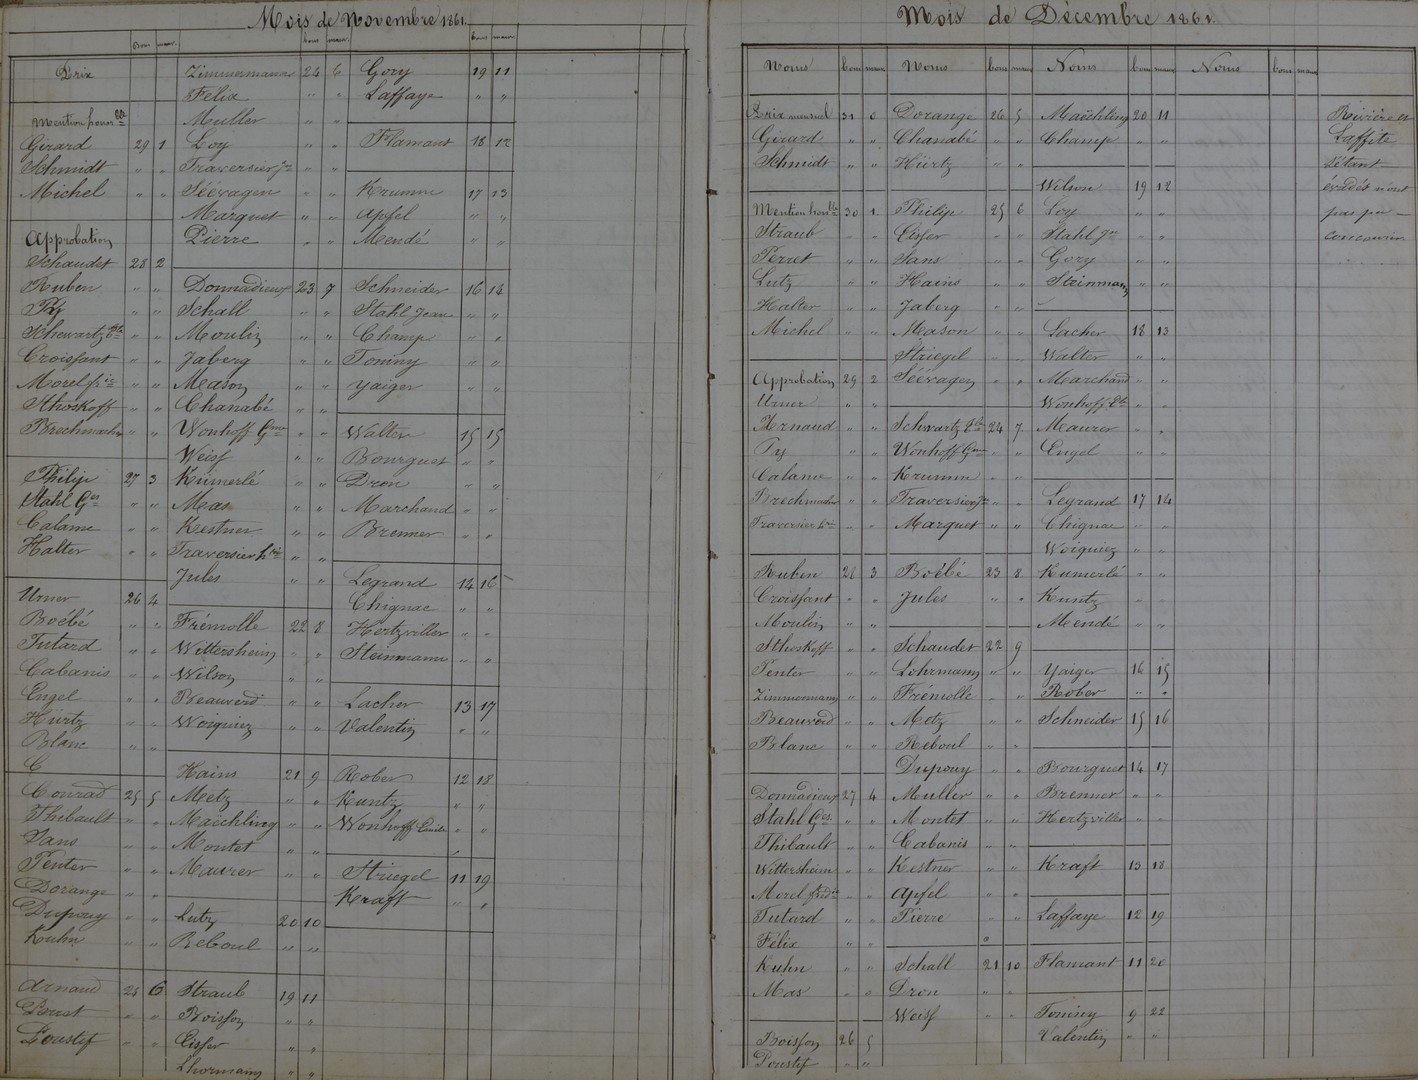 Mois de Novembre 1861.
bons mauv.
bons mauv.
bons mauv.
Prix
Mention honor ble
Girard 29 1
Schmidt " "
Michel " "
Approbation
Schaudet 28 2
Ruben " "
Schwartz " "
Croissant " "
Morel " "
Sthoskoff " "
Brechmacher " "
Philip 27 3
Stahl Ges " "
Calame " "
Halter " "
Urner 26 4
Boébé " "
Tutard " "
Cabanis " "
Engel " "
Hürtz " "
Blanc " "
C
Conrad 25 5
Thibault " "
Sans " "
Penter " "
Dorange " "
Dupouy " "
Kuhn " "
Arnaud 25 6
" "
Poustif " "
Zimmermann 24 6
Félix " "
Muller " "
Loy " "
Traversier Jn " "
Séévagen " "
Marquet " "
Pierre " "
Donnadieux 23 7
Schall " "
Moulin " "
Jaberg " "
Meason " "
Chanabé " "
Wonhoff Gme " "
Weiss " "
Kümerlé " "
Mas " "
Kestner " "
Traversier " "
Jules " "
Frémolle 22 8
Wittersheim " "
Wilson " "
Beauverd " "
Woiquiez " "
Hains 21 9
Metz " "
Maëchling " "
Montet " "
Maurer " "
Lutz 20 10
Reboul " "
Straub 19 11
Boisson " "
Eisser " "
Lhormann " "
Gory 19 11
Laffaye " "
Flamant 18 12
Krumm 17 13
Apfel " "
Mendé " "
Schneider 16 14
Stahl Jean " "
Champ " "
Tominy " "
Yaiger " "
Walter 15 15
Bourguet " "
Dron " "
Marchand " "
Brenner " "
Legrand 14 16
Chignac " "
Hertzviller " "
Steinmann " "
Lacher 13 17
Valentin " "
Rober 12 18
Kuntz " "
Wonhoff Emile " "
Striegel 11 19
Kraft " "
Mois de Décembre 1861.
Noms bons mauv Noms bons mauv Noms bons mauv Noms bons mauv
Prix mensuel 31 0
Girard " "
Schmidt " "
Mention hon ble 30 1
Straub " "
Perret " "
Lutz " "
Halter " "
Michel " "
Approbation 29 2
Urner " "
Arnaud " "
Py " "
Calame " "
Brechmacher " "
Traversier " "
Ruben 28 3
Croissant " "
Moulin " "
Sthoskoff " "
Penter " "
Zimmermann " "
Beauverd " "
Blanc " "
Donnadieux 27 4
Stahl Ges " "
Thibault " "
Wittersheim " "
Morel " "
Tutard " "
Félix " "
Kuhn " "
Mas " "
Boisson 26 5
Poustif " "
Dorange 26 5
Chanabé " "
Hürtz " "
Philip 25 6
Eisser " "
Sans " "
Hains " "
Jaberg " "
Meason " "
Striegel " "
Séévagen " "
Schwartz 24 7
Wonhoff Gme " "
Krumm " "
Traversier Jn " "
Marquet " "
Boébé 23 8
Jules " "
Schaudet 22 9
Lohrmann " "
Frémolle " "
Metz " "
Reboul " "
Dupouy " "
Muller " "
Montet " "
Cabanis " "
Kestner " "
Apfel " "
Pierre " "
Schall 21 10
Dron " "
Weiss " "
Maëchling 20 11
Champ " "
Wilson 19 12
Loy " "
Stahl Jn " "
Gory " "
Steinmann " "
Lacher 18 13
Walter " "
Marchand " "
Wonhoff " "
Meaurer " "
Engel " "
Legrand 17 14
Chignac " "
Woiquiez " "
Kumerlé " "
Kuntz " "
Mendé " "
Yaiger 16 15
Rober " "
Schneider 15 16
Bourguet 14 17
Brenner " "
Hertzviller " "
Kraft 13 18
Laffaye 12 19
Flamant 11 20
Tominy 9 22
Valentin " "
Rivière et
Laffite
s'étant
évadés n'ont
pas pu
concourir